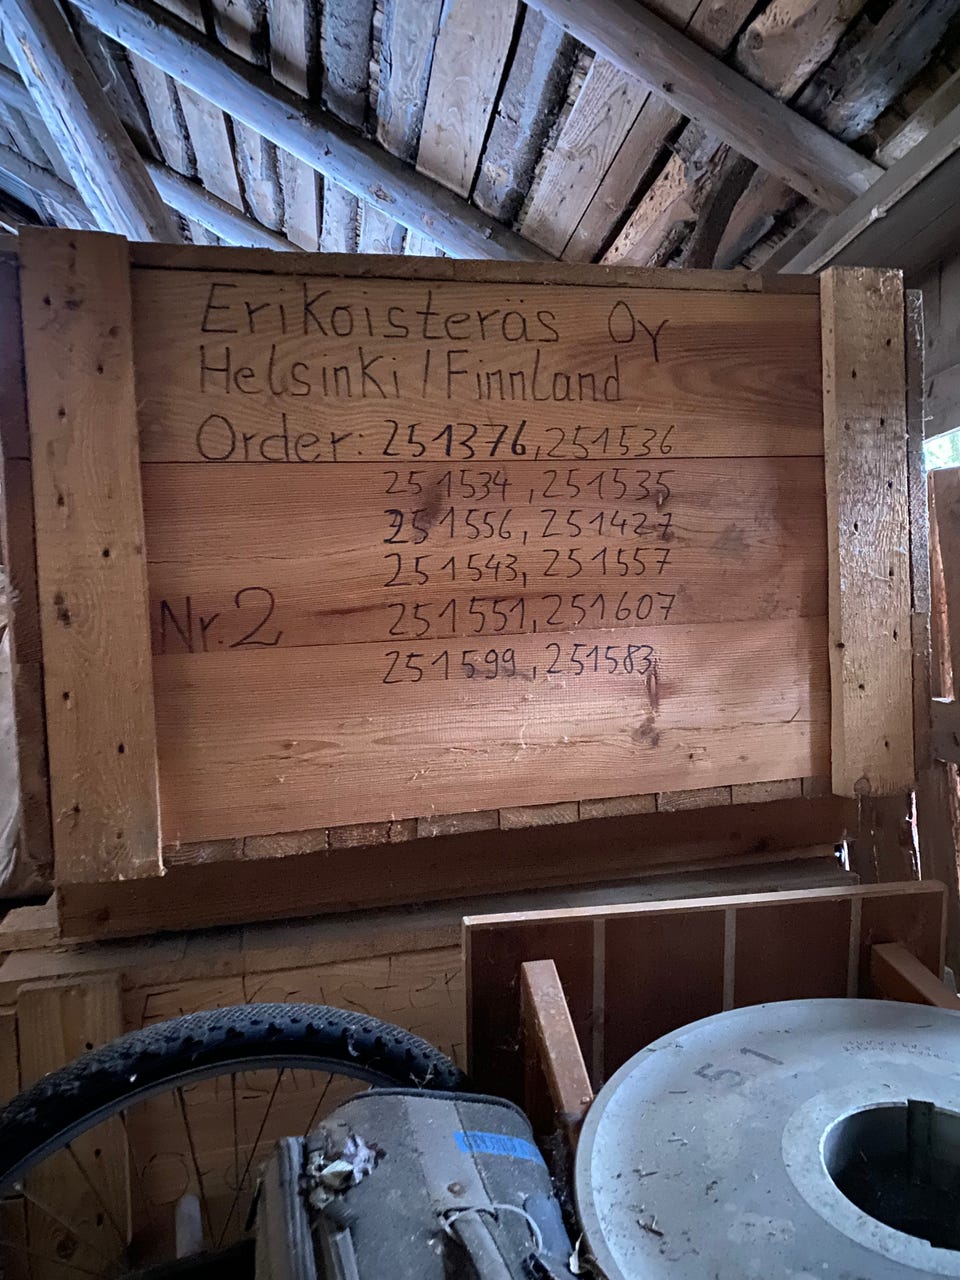 Erikoisteräs Oy
Helsinki/Finnland
Order: 251376,251536
251534,251535
251556,251427
251543,251557
Nr.2 251551,251607
251599,251583
51